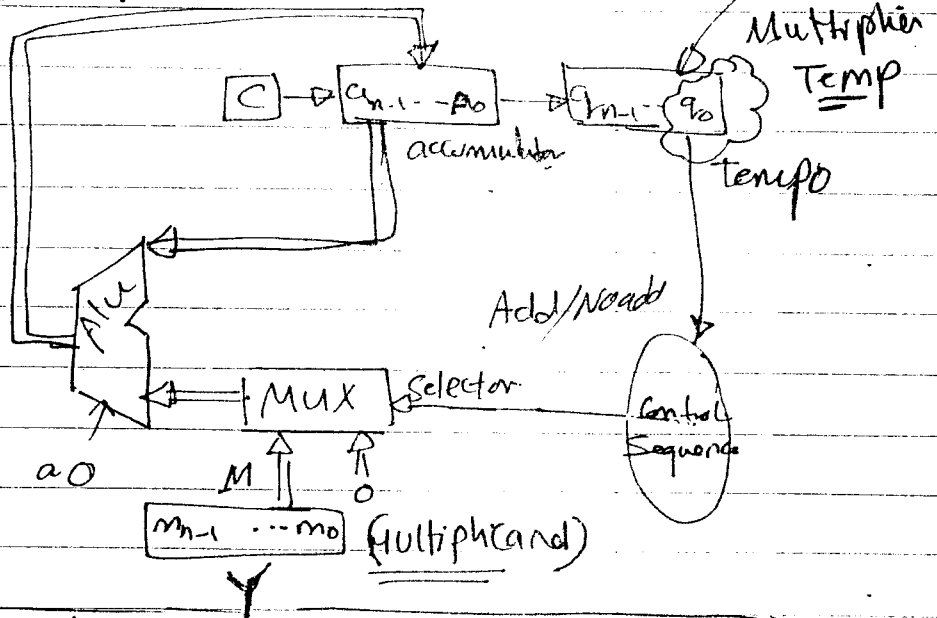 Multiplier
Temp
C
a n-1 ... a0
q n-1 ... q0
accumulator
Tempo
Alu
Add/Noadd
MUX
Selector
Control
Sequence
a0
M
0
m n-1 ... m0
(Multiplicand)
Y